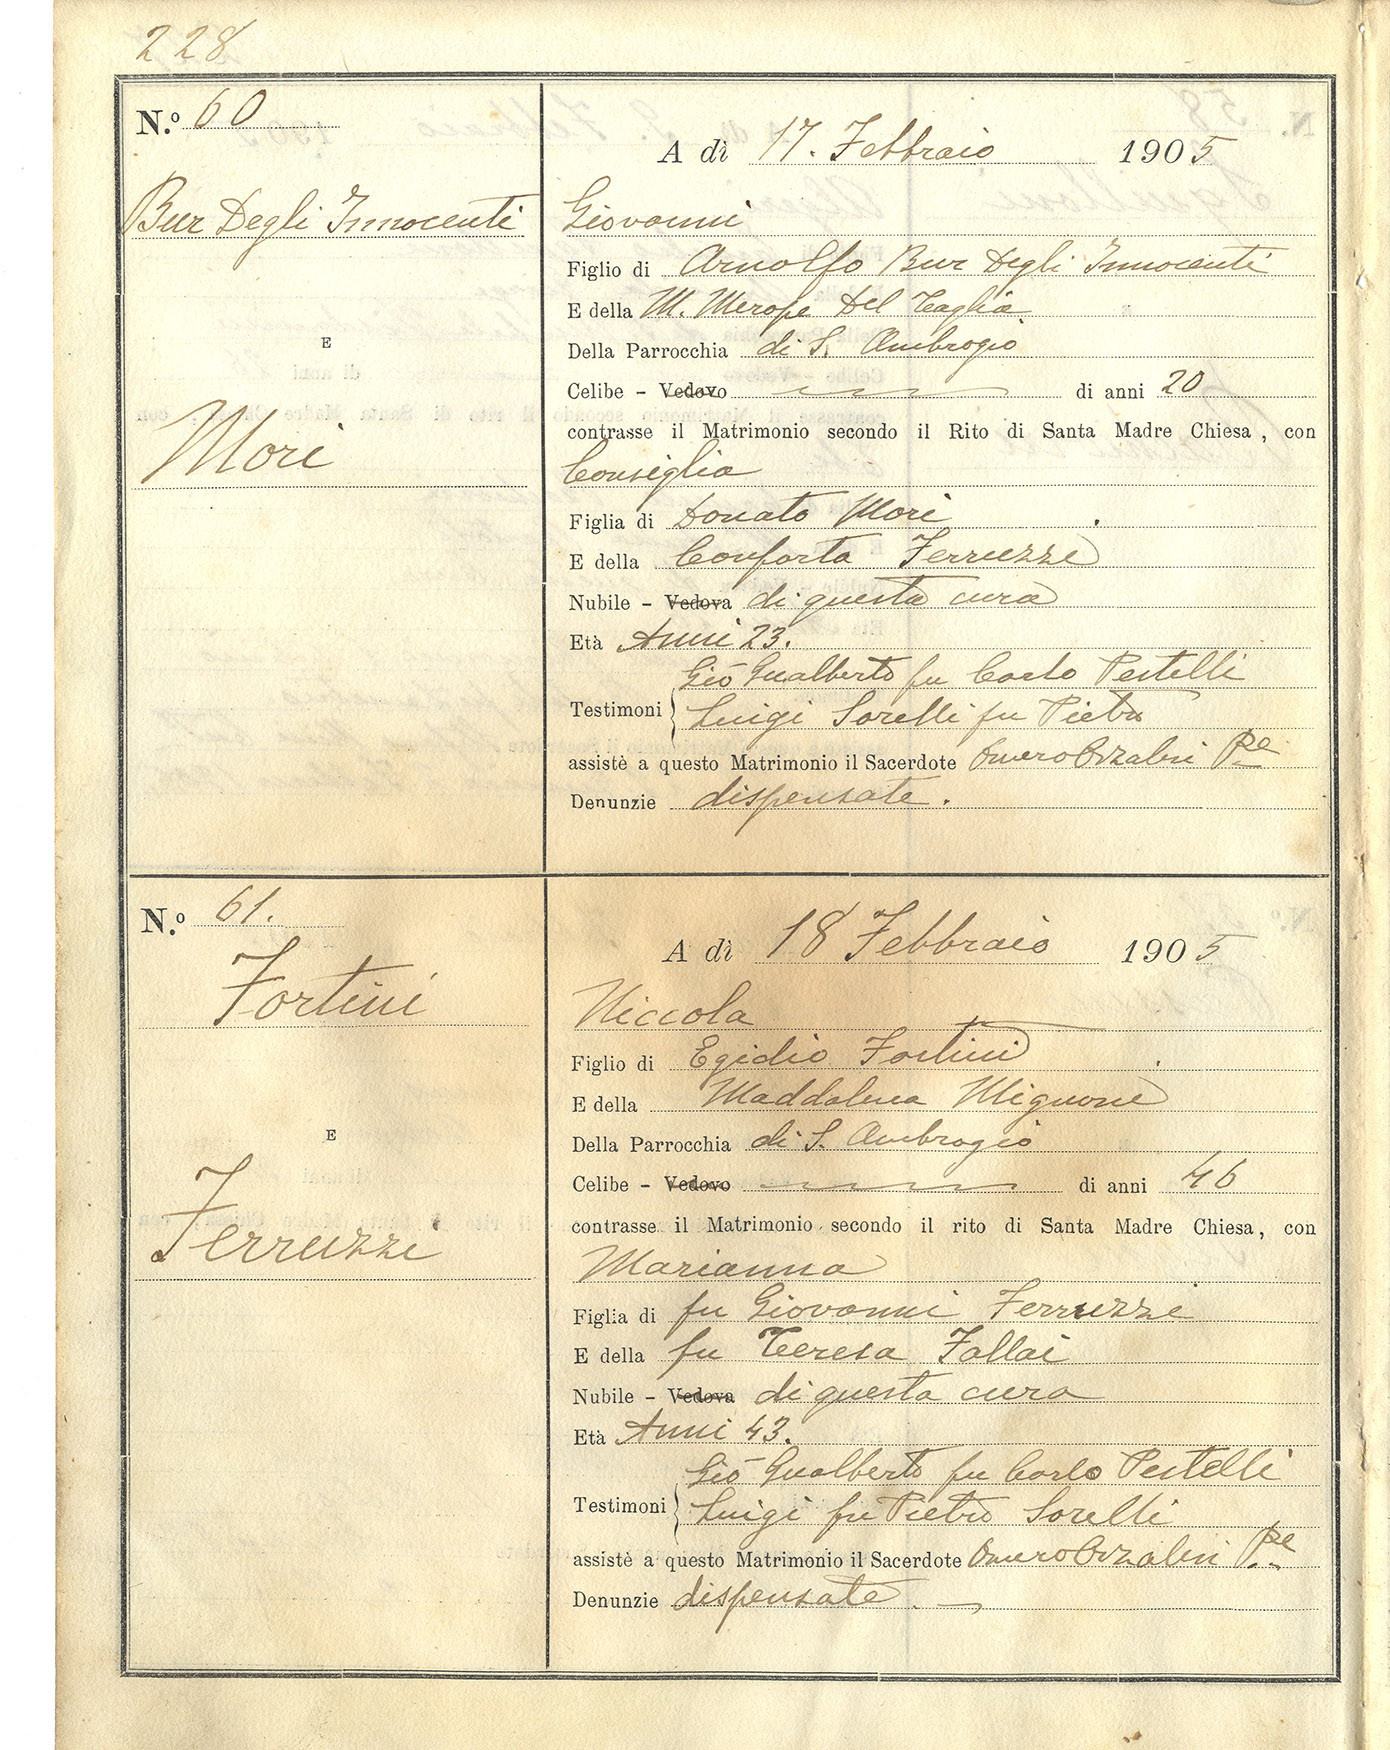 228
N.º 60
A dì 17. Febbraio 1905
Bur Degli Innocenti
Giovanni
Figlio di Arnolfo Bur Degli Innocenti
E della M. Merope Del Taglia
Della Parrocchia di S. Ambrogio
E
Celibe - Vedovo di anni 20
contrasse il Matrimonio secondo il Rito di Santa Madre Chiesa, con
Mori
Consiglia
Figlia di Donato Mori
E della Conforta Ferruzzi
Nubile - Vedova di questa cura
Età Anni 23.
Testimoni
Gio Gualberto fu Carlo Pestelli
Luigi Sorelli fu Pietro
assistè a questo Matrimonio il Sacerdote Omero Orzalesi Pe
Denunzie dispensate.
N.º 61.
A dì 18 Febbraio 1905
Fortini
Niccola
Figlio di Egidio Fortini
E della Maddalena Mignoni
Della Parrocchia di S. Ambrogio
E
Celibe - Vedovo di anni 46
contrasse il Matrimonio secondo il rito di Santa Madre Chiesa, con
Ferruzzi
Marianna
Figlia di fu Giovanni Ferruzzi
E della fu Teresa Fallai
Nubile - Vedova di questa cura
Età Anni 43.
Testimoni
Gio Gualberto fu Carlo Pestelli
Luigi fu Pietro Sorelli
assistè a questo Matrimonio il Sacerdote Omero Orzalesi Pe
Denunzie dispensate.